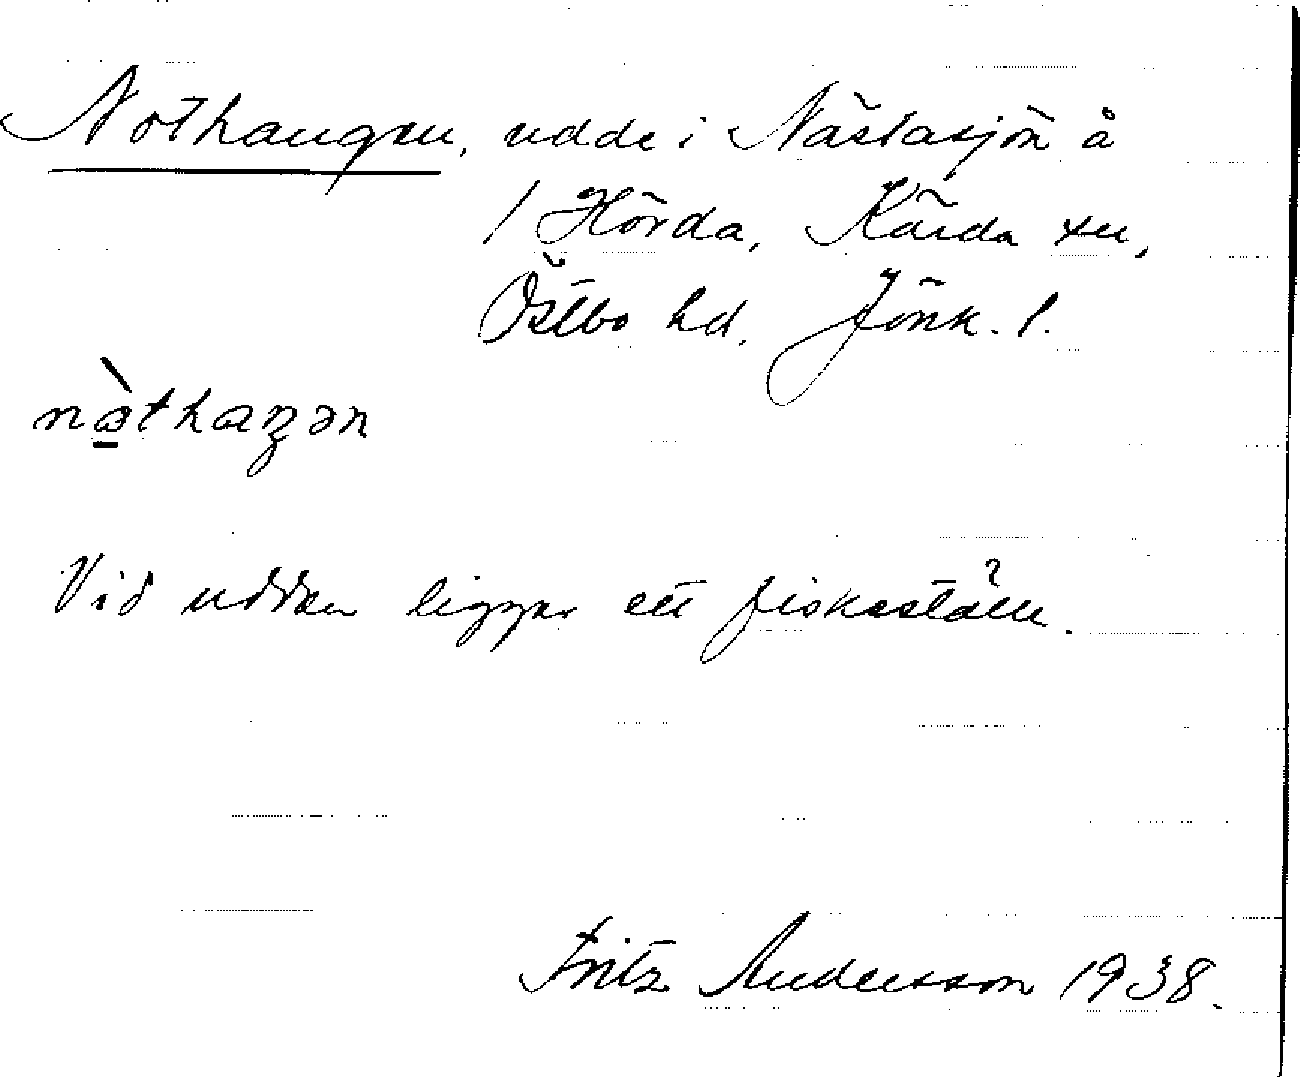 Nothangen, udde i Nästasjön å
/ Hörda, Kärda sn,
Östbo hd. Jönk. l.
nòthaŋən
Vid udden ligger ett fiskeställe.
Fritz Andersson 1938.